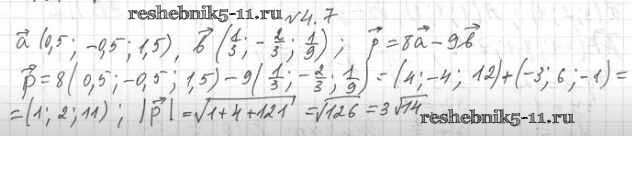 reshebnik5-11.ru №4.7
a⃗ (0,5; -0,5; 1,5), b⃗ (1/3; -2/3; 1/9); p⃗ = 8a⃗ - 9b⃗
p⃗ = 8(0,5; -0,5; 1,5) - 9(1/3; -2/3; 1/9) = (4; -4; 12) + (-3; 6; -1) =
= (1; 2; 11); |p⃗| = √1+4+121 = √126 = 3√14
reshebnik5-11.ru